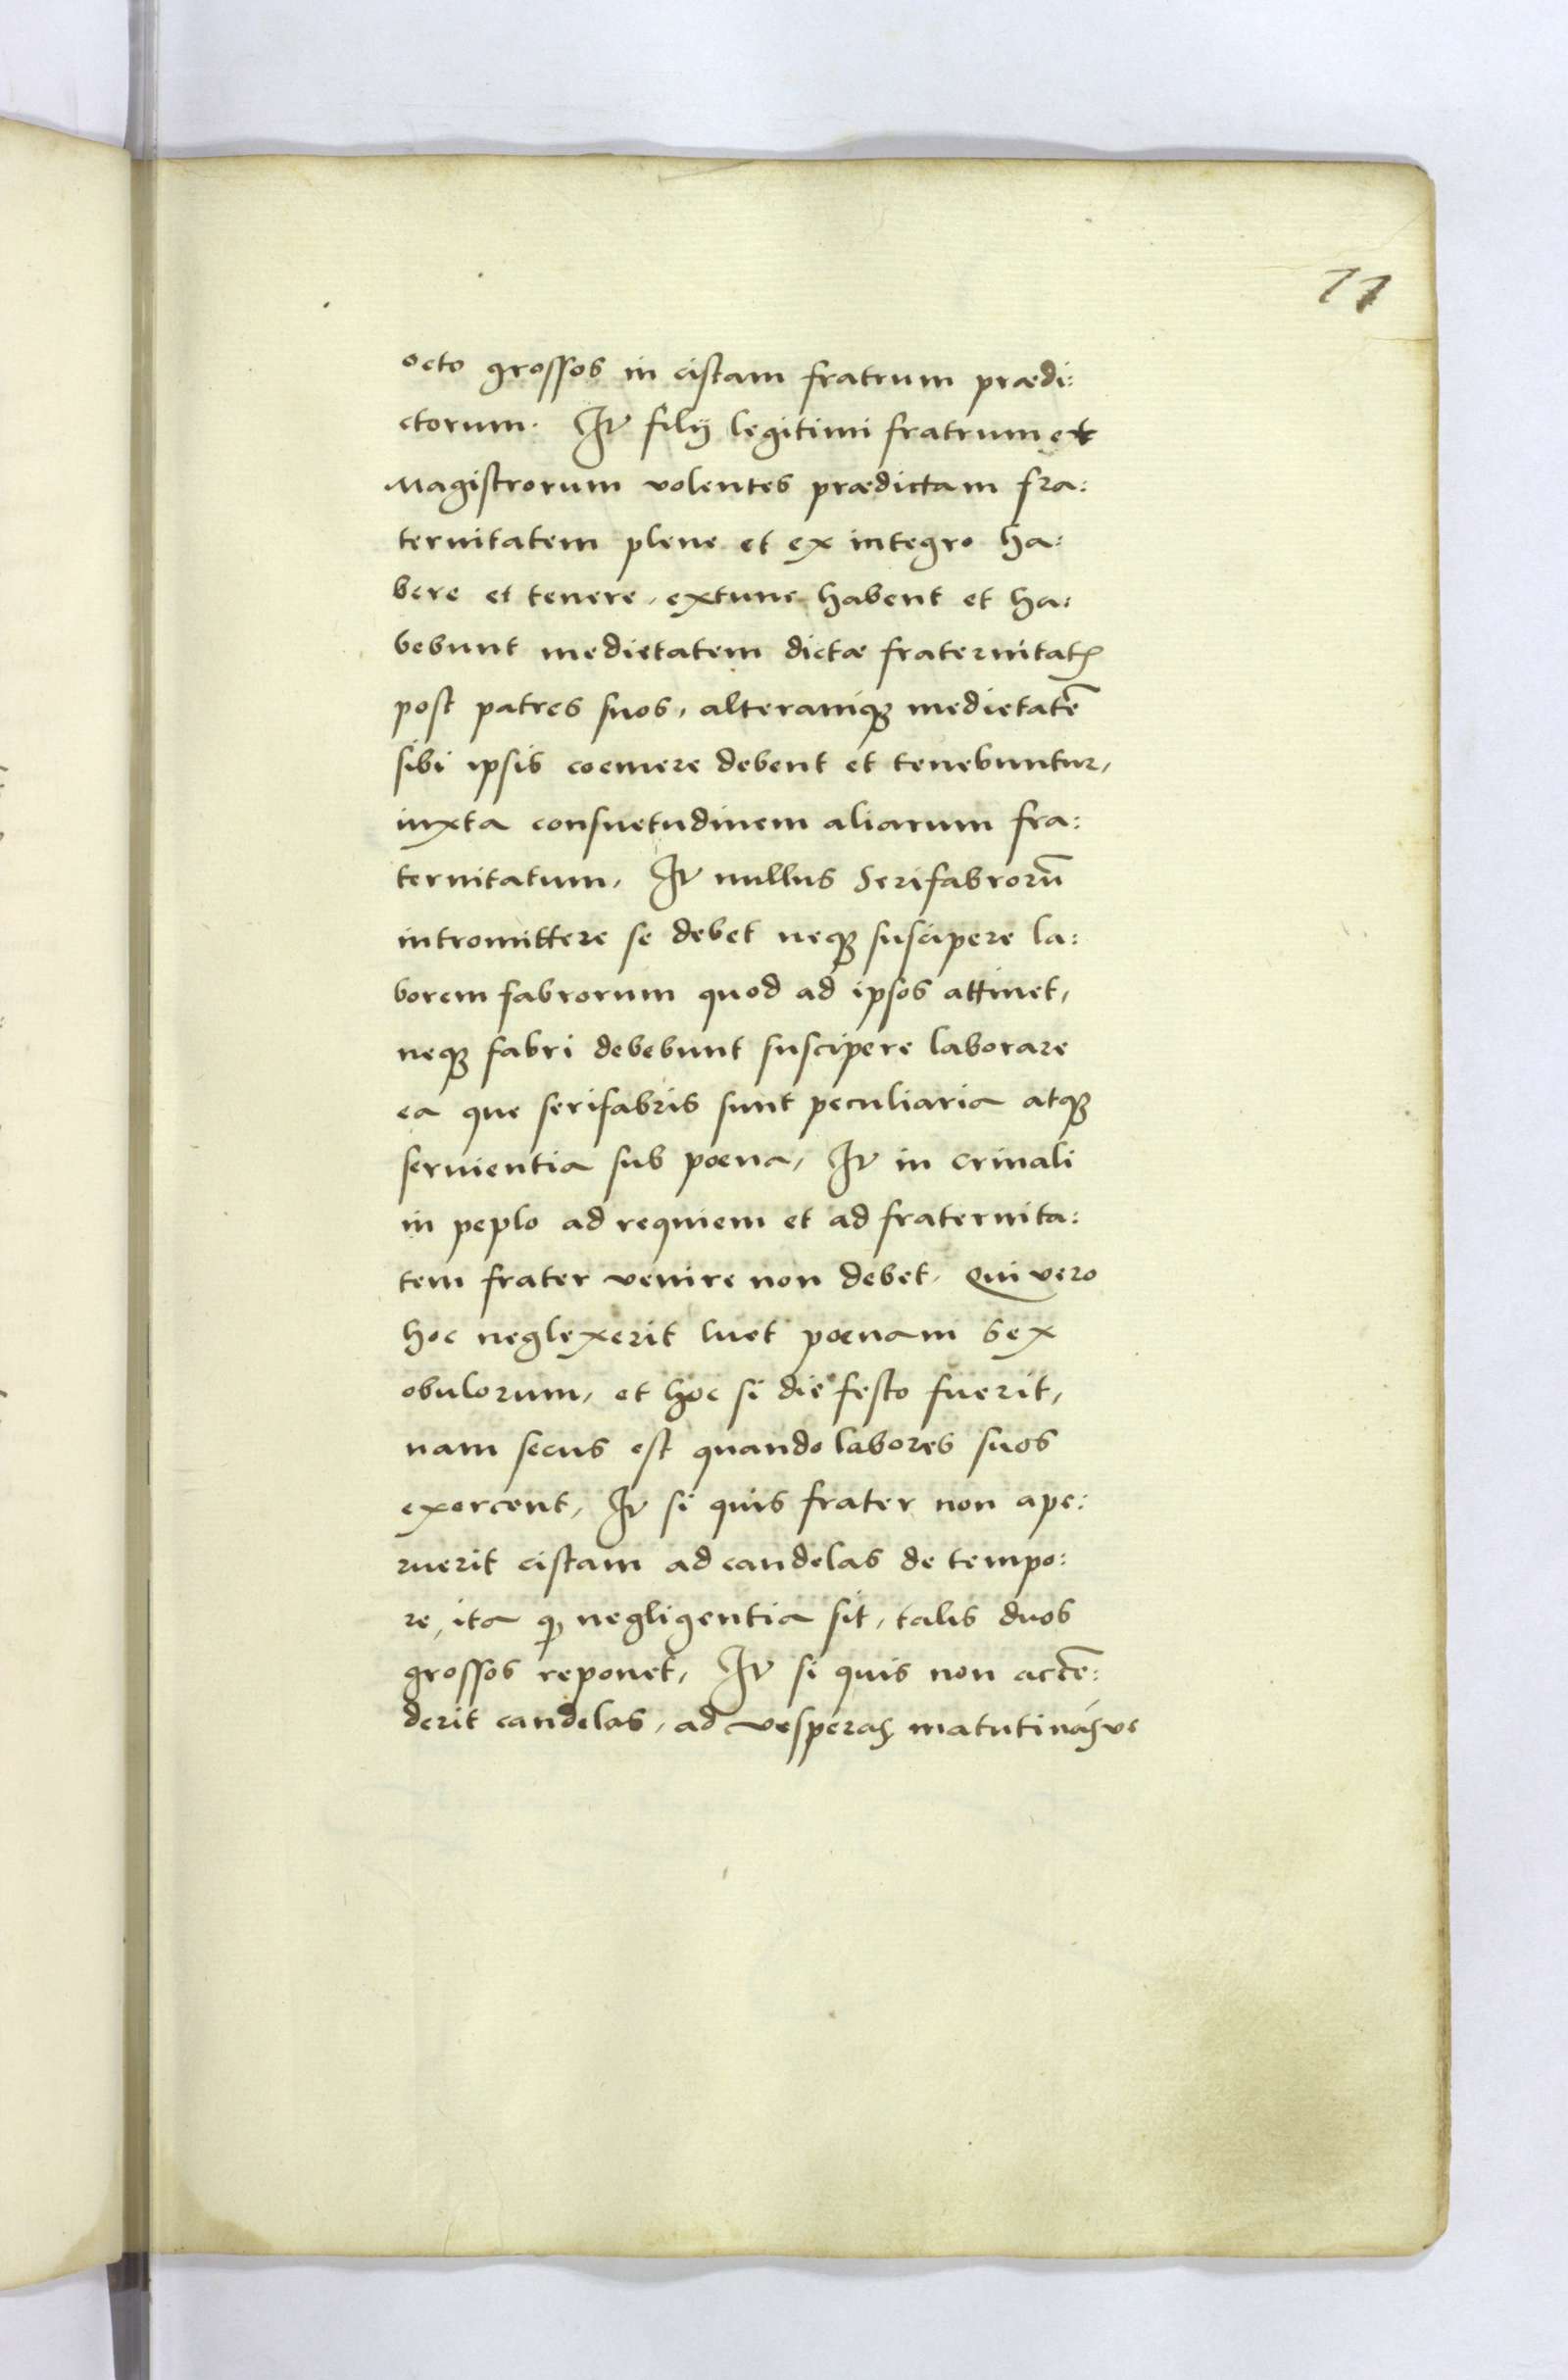 11
octo grossos in cistam fratrum prædi:
ctorum. Itẽ filij legitimi fratrum et
Magistrorum volentes prædictam fra:
ternitatem plene et ex integro ha:
bere et tenere, extunc habent et ha:
bebunt medietatem dictæ fraternitatꝭ
post patres suos, alteramqꝫ medietatẽ
sibi ipsis coemere debent et tenebuntur,
iuxta consuetudinem aliarum fra:
ternitatum, Itẽ nullus Serifabrorũ
intromittere se debet neqꝫ suscipere la:
borem fabrorum quod ad ipsos attinet,
neqꝫ fabri debebunt suscipere laborare
ea que serifabris sunt peculiaria atqꝫ
seruientia sub poena, Itẽ in crinali
in peplo ad requiem et ad fraternita:
tem frater venire non debet. Qui vero
hoc neglexerit luet poenam sex
obulorum, et hoc si die festo fuerit,
nam secus est quando labores suos
exercent, Itẽ si quis frater non ape:
ruerit cistam ad candelas de tempo:
re, ita ꝙ negligentia sit, talis duos
grossos reponet, Itẽ si quis non accẽ:
derit candelas, ad vesperas matutinasve